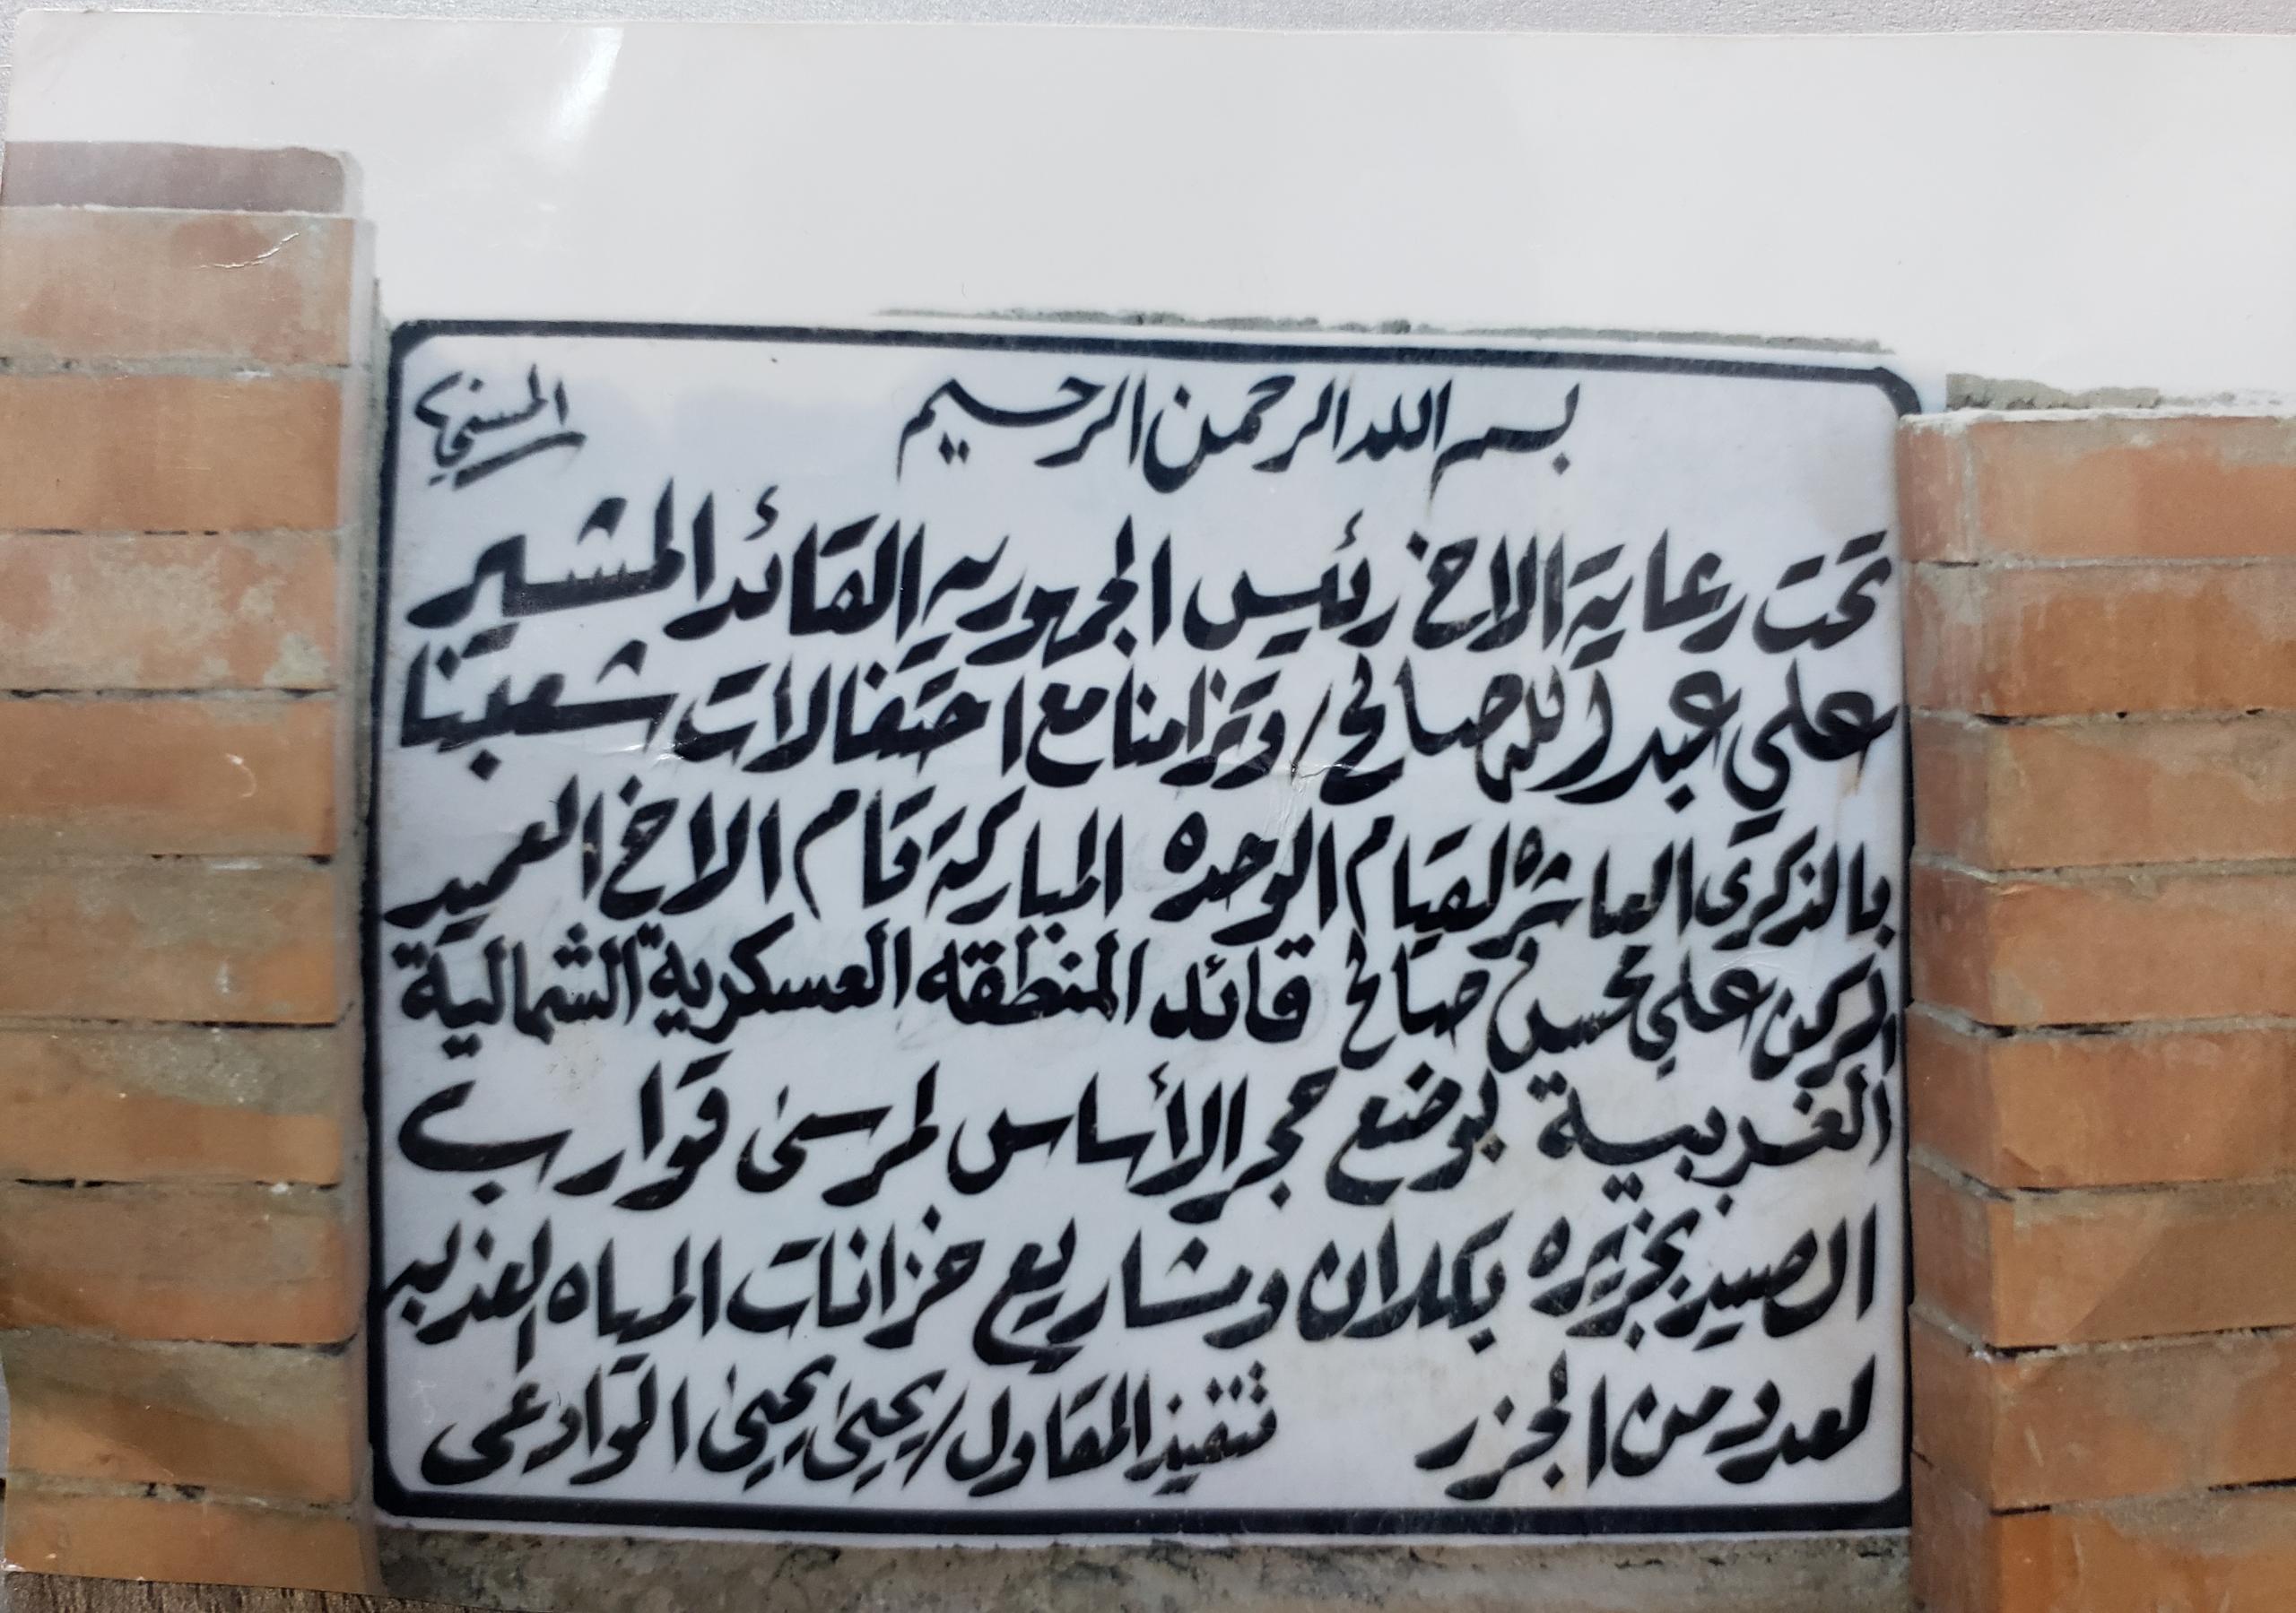 بسم الله الرحمن الرحيم
تحت رعاية الاخ رئيس الجمهوريه القائد المشير
علي عبدالله صالح / وتزامنا مع احتفالات شعبنا
بالذكرى العاشره لقيام الوحده المباركة قام الاخ العميد
الركن علي محسن صالح قائد المنطقه العسكرية الشمالية
الغربية بوضع حجر الأساس لمرسى قوارب
الصيد بجزيره بكلان ومشاريع خزانات المياه العذبه
لعدد من الجزر تنفيذ المقاول / يحيى يحيى الوادعى